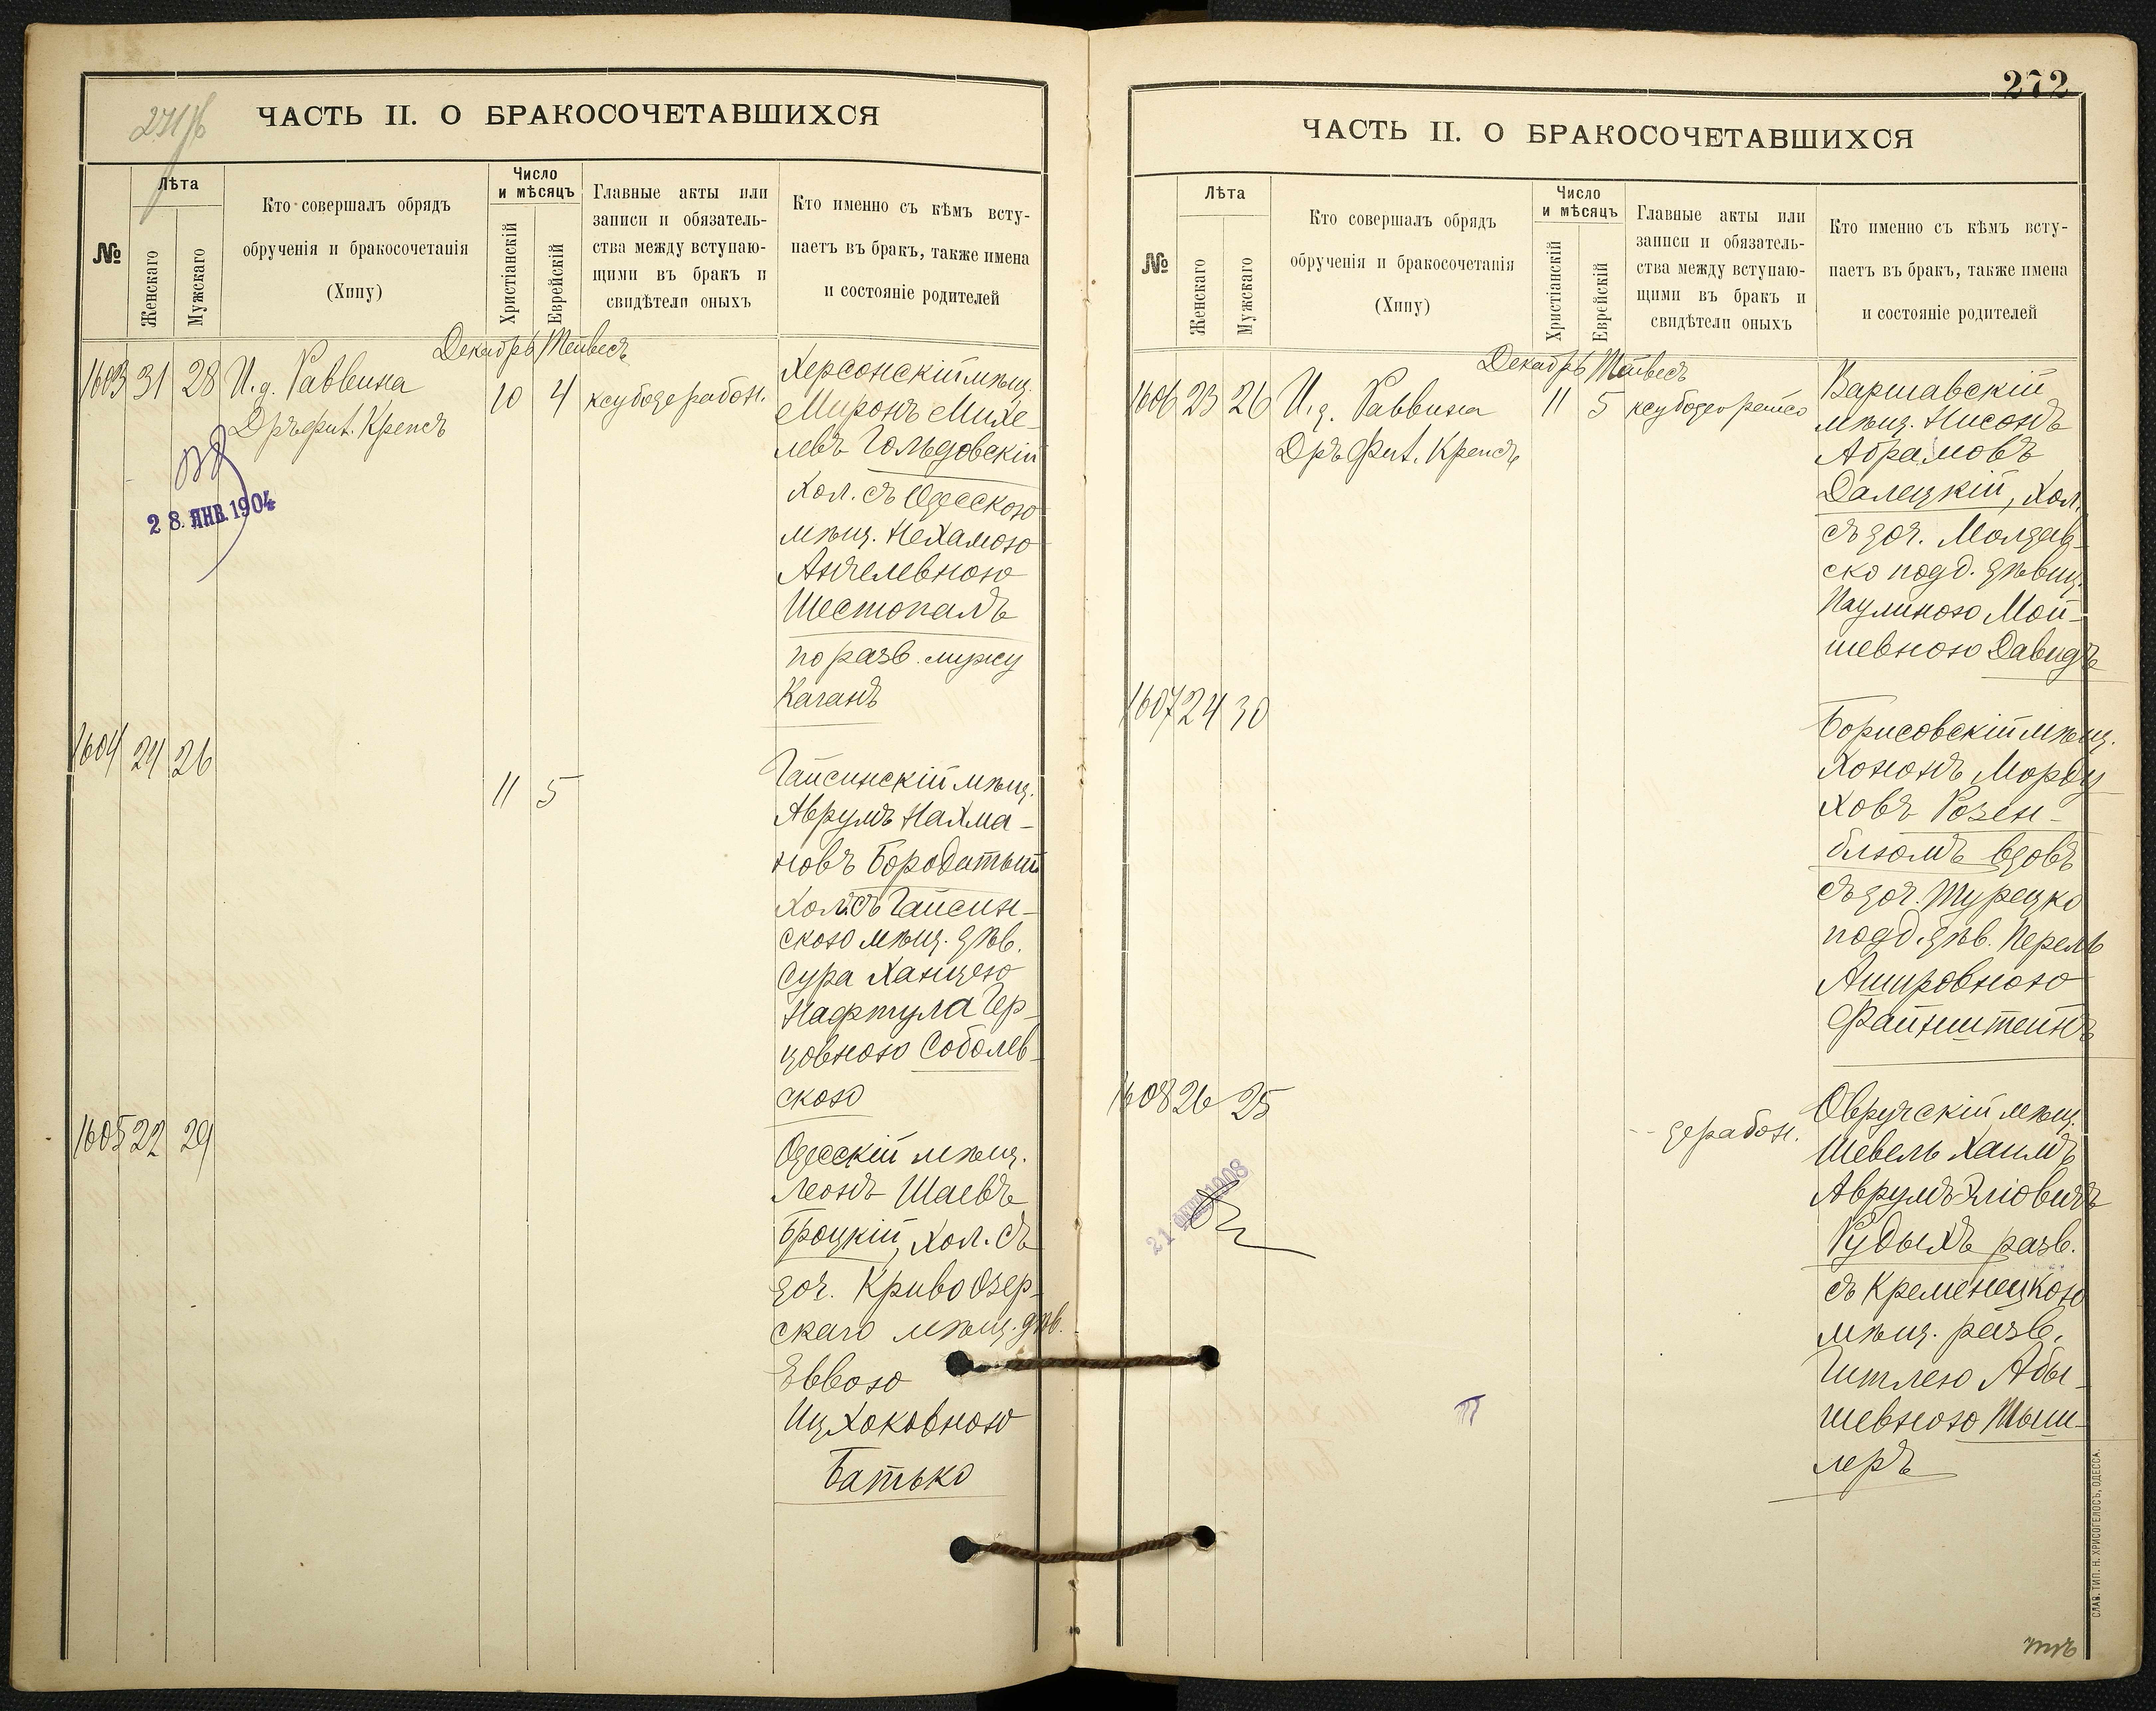 271 об
ЧАСТЬ II. О БРАКОСОЧЕТАВШИХСЯ
№
Лѣта
Женскаго
Мужскаго
Кто совершалъ обрядъ
обрученія и бракосочетанія
(Хипу)
Число
и мѣсяцъ
Христіанскій
Еврейскій
Главные акты или
записи и обязатель-
ства между вступаю-
щими въ бракъ и
свидѣтели оныхъ
Кто именно съ кѣмъ всту-
паетъ въ бракъ, также имена
и состояніе родителей
Декабрь Тейвесъ
1603 31 28 И.д. Раввина
Дръ фил. Крепсъ
10 4 ксубозе рабон.
28. ЯНВ. 1904
Херсонскій мѣщ.
Миронъ Михе-
левъ Гольдовскій
хол. съ Одесскою
мѣщ. Нехамою
Анчелевною
Шестопалъ
по разв. мужу
Каганъ
1604 24 26
11 5
Гайсинскій мѣщ.
Аврумъ Нахма-
новъ Бородатый
хол. съ Гайсин-
скою мѣщ. дѣв.
Сура Ханцею
Нафтула Гер-
цовною Соболев-
скою
1605 22 29
Одесскій мѣщ.
Леонъ Шаевъ
Броцкій, хол. съ
доч. Криво Озер-
скаго мѣщ. дѣв.
Еввою
Ицхоковною
Батько
272
ЧАСТЬ II. О БРАКОСОЧЕТАВШИХСЯ
№
Лѣта
Женскаго
Мужскаго
Кто совершалъ обрядъ
обрученія и бракосочетанія
(Хипу)
Число
и мѣсяцъ
Христіанскій
Еврейскій
Главные акты или
записи и обязатель-
ства между вступаю-
щими въ бракъ и
свидѣтели оныхъ
Кто именно съ кѣмъ всту-
паетъ въ бракъ, также имена
и состояніе родителей
Декабрь Тейвесъ
1606 23 26 И.д. Раввина
Дръ Фил. Крепсъ
11 5 ксубодеорейсо
Варшавскій
мѣщ. Нисонъ
Абрамовъ
Далецкій, хол.
съ доч. Молдав-
ско подд. дѣвиц.
Паулиною Мой-
шевною Давидъ
1607 24 30
Борисовскій мѣщ.
Хононъ Морду
ховъ Розен-
блюмъ вдовъ
съ доч. Турецко
подд. дѣв. Перель
Ашировною
Файнштейнъ
1608 26 25
дерабон.
21 ФЕВ 1908
Овручскій мѣщ.
Шевель Хаимъ
Аврумъ-Эліовичъ
Рудыхъ разв.
съ Кременецкою
мѣщ. разв.
Гитлею Абы-
шевною Тыш-
леръ
СЛАВ. ТИП. Н. ХРИСОГЕЛОСЪ, ОДЕССА.